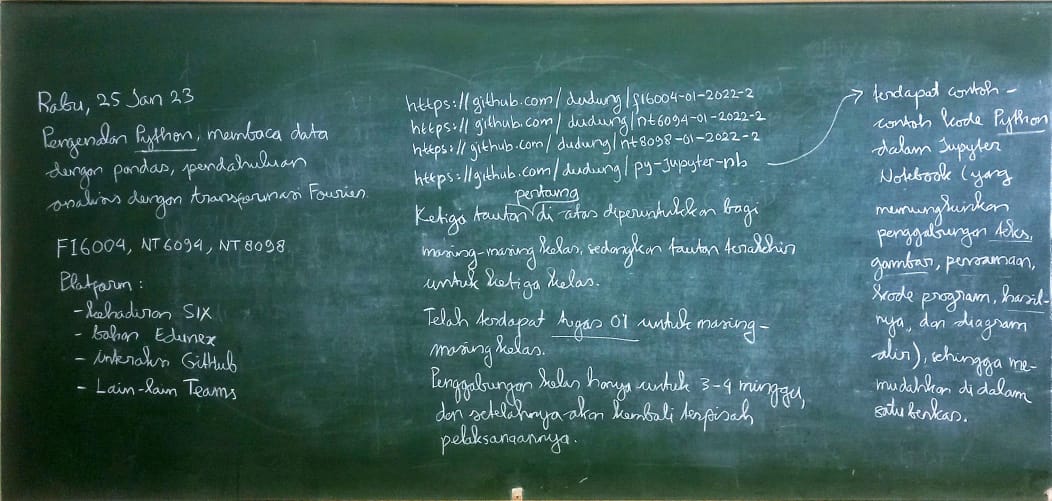 Rabu, 25 Jan 23
Pengenalan Python, membaca data
dengan pandas, pendahuluan
analisis dengan transformasi Fourier.
FI6004, NT6094, NT8098
Platform :
- kehadiran SIX
- bahan Edunex
- interaksi GitHub
- Lain-lain Teams
https://github.com/dudung/fi6004-01-2022-2
https://github.com/dudung/nt6094-01-2022-2
https://github.com/dudung/nt8098-01-2022-2
https://github.com/dudung/py-jupyter-nb
pertama
Ketiga tautan di atas diperuntukkan bagi
masing-masing kelas, sedangkan tautan terakhir
untuk ketiga kelas.
Telah terdapat tugas 01 untuk masing-
masing kelas.
Penggabungan kelas hanya untuk 3-4 minggu,
dan setelahnya akan kembali terpisah
pelaksanaannya.
terdapat contoh-
contoh kode Python
dalam Jupyter
Notebook (yang
memungkinkan
penggabungan teks,
gambar, persamaan,
kode program, hasil-
nya, dan diagram
alir), sehingga me-
mudahkan di dalam
satu berkas.